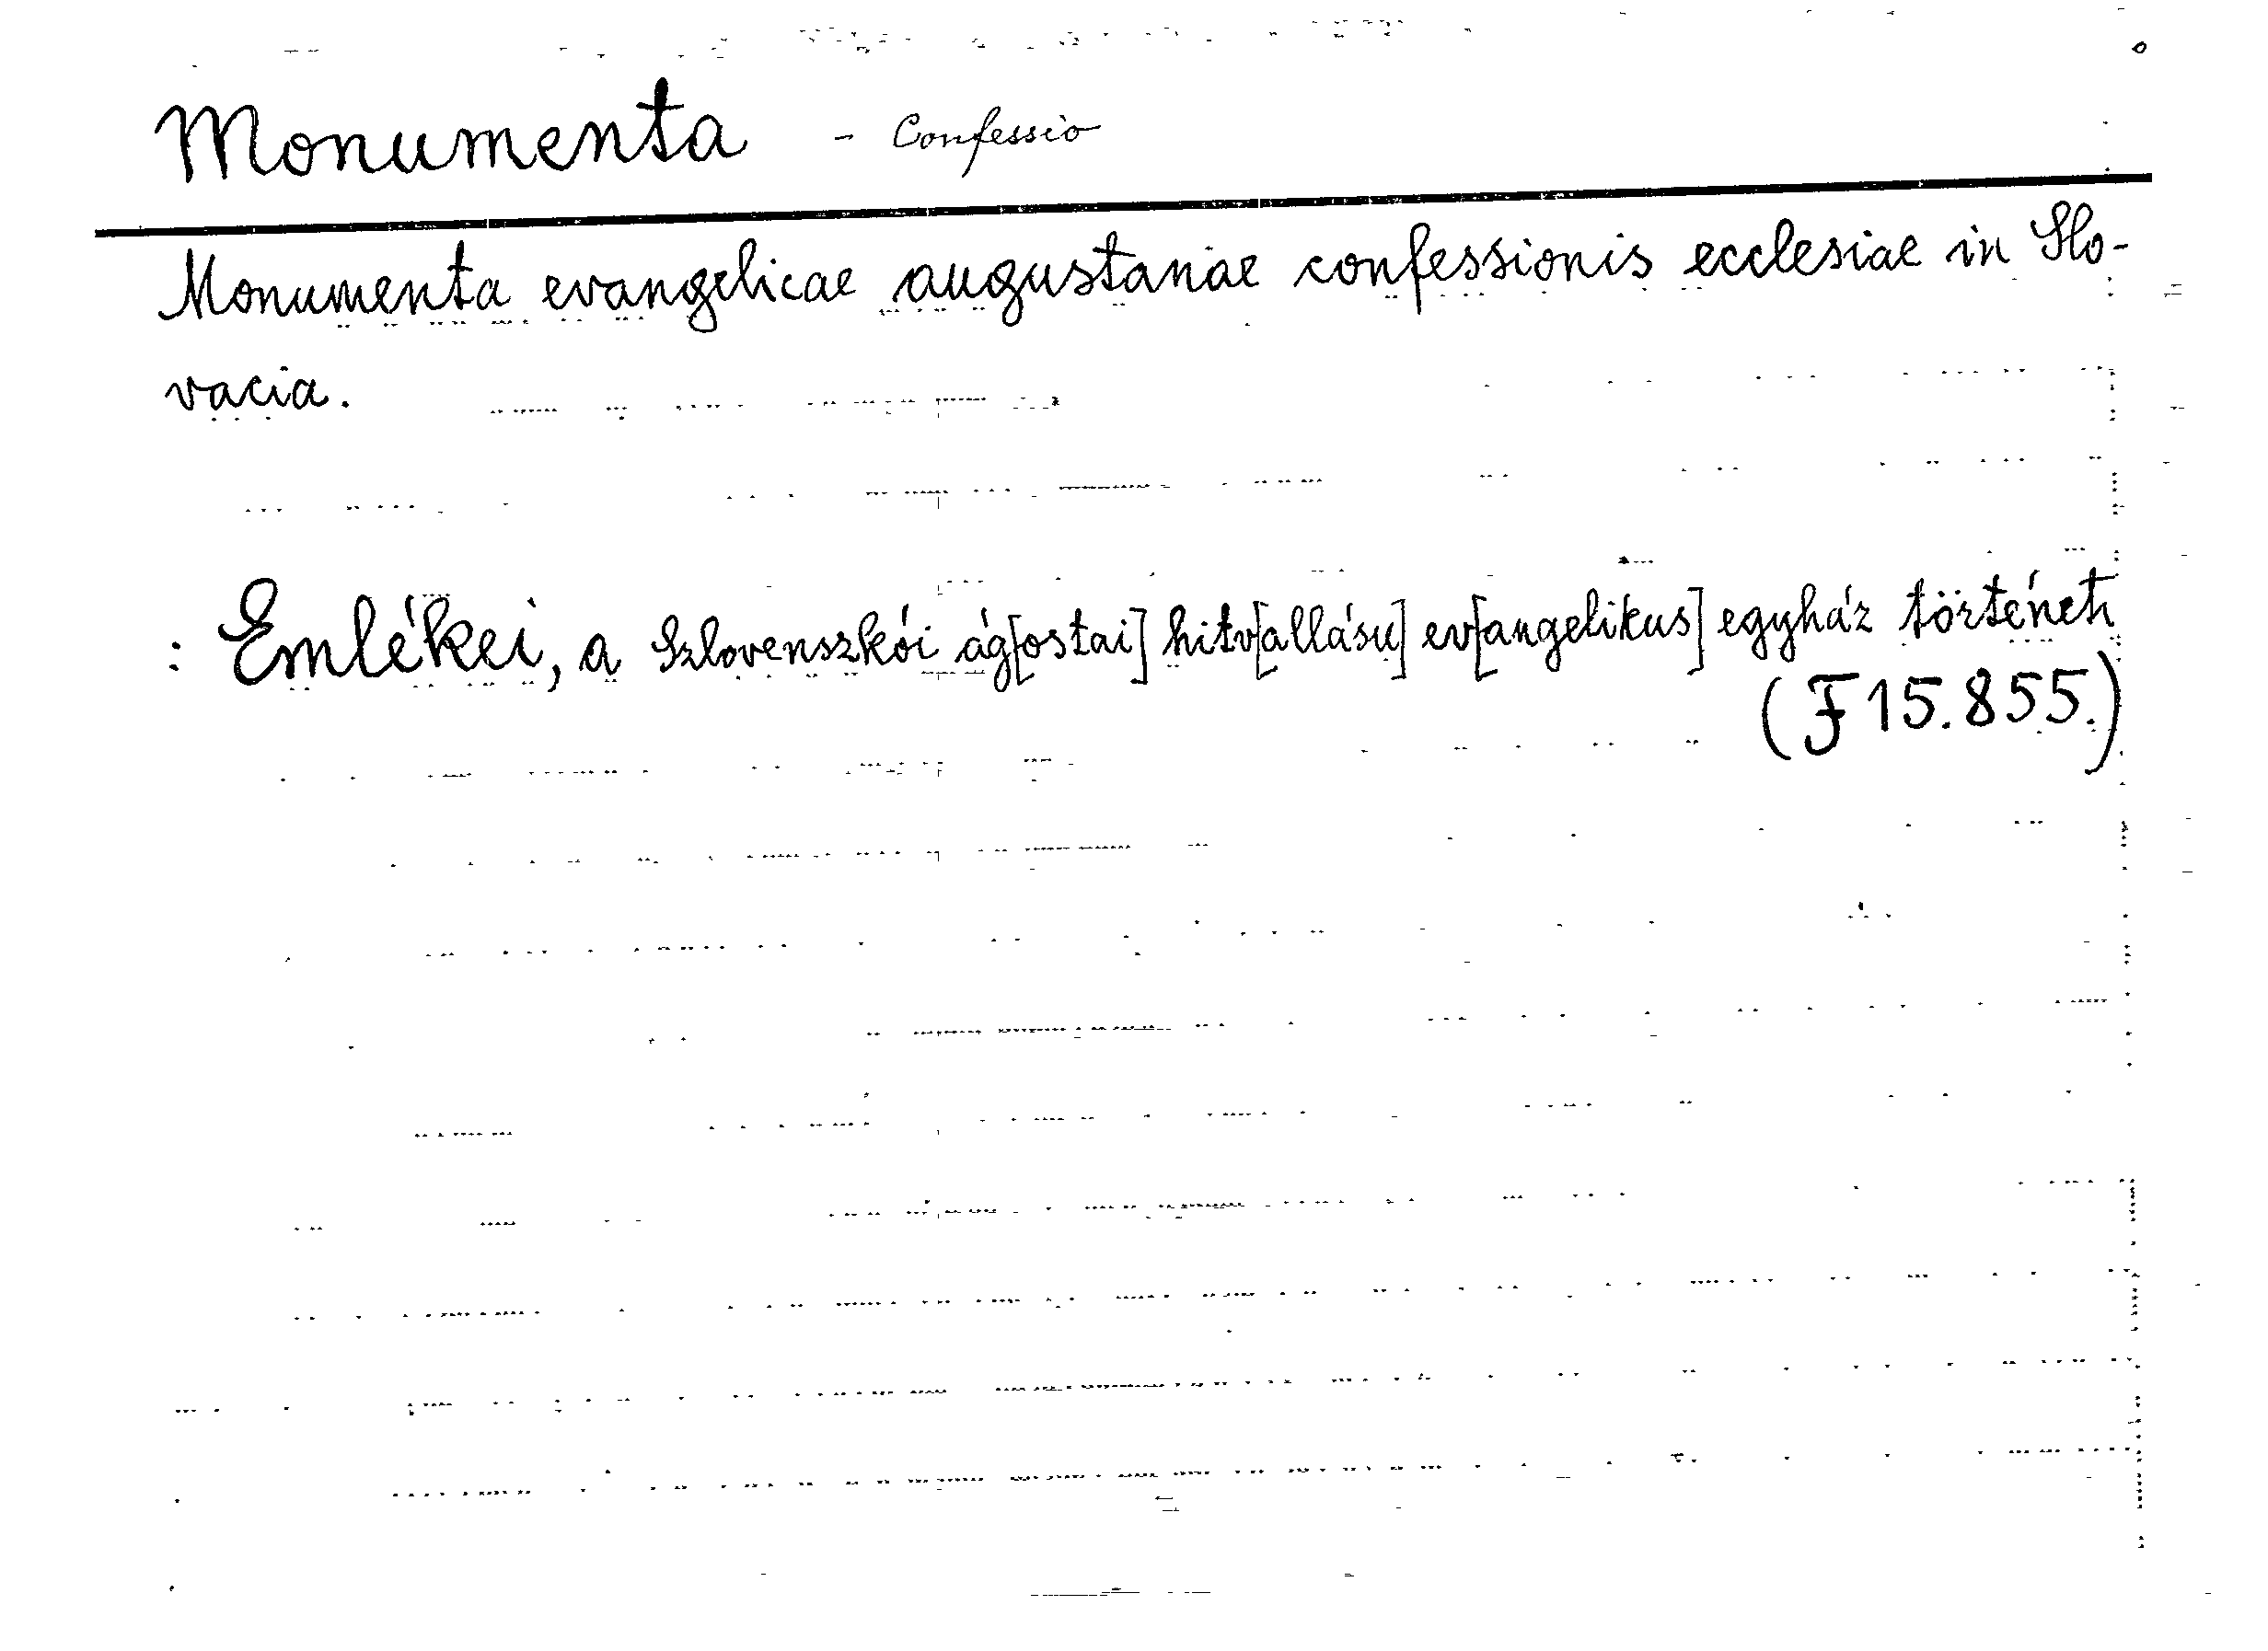 Monumenta - Confessio
Monumenta evangelicae augustanae confessionis ecclesiae in Slo-
vacia.
: Emlékei, a szlovenszkói ág[ostai] hitv[allásu] ev[angelikus] egyház történeti
(F 15.855.)